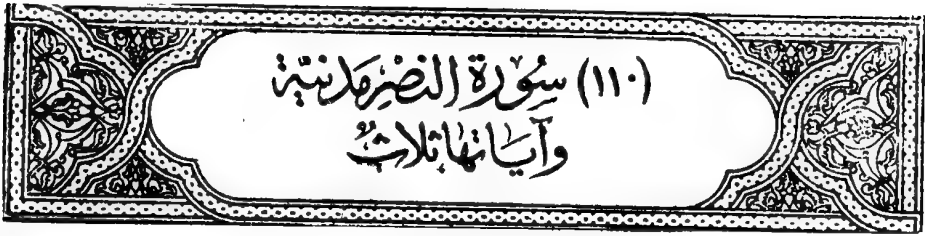 (١١٠) سُورَة النَّصْرِ مَدَنيَّة
وَآيَاتهَا ثَلَاثٌ